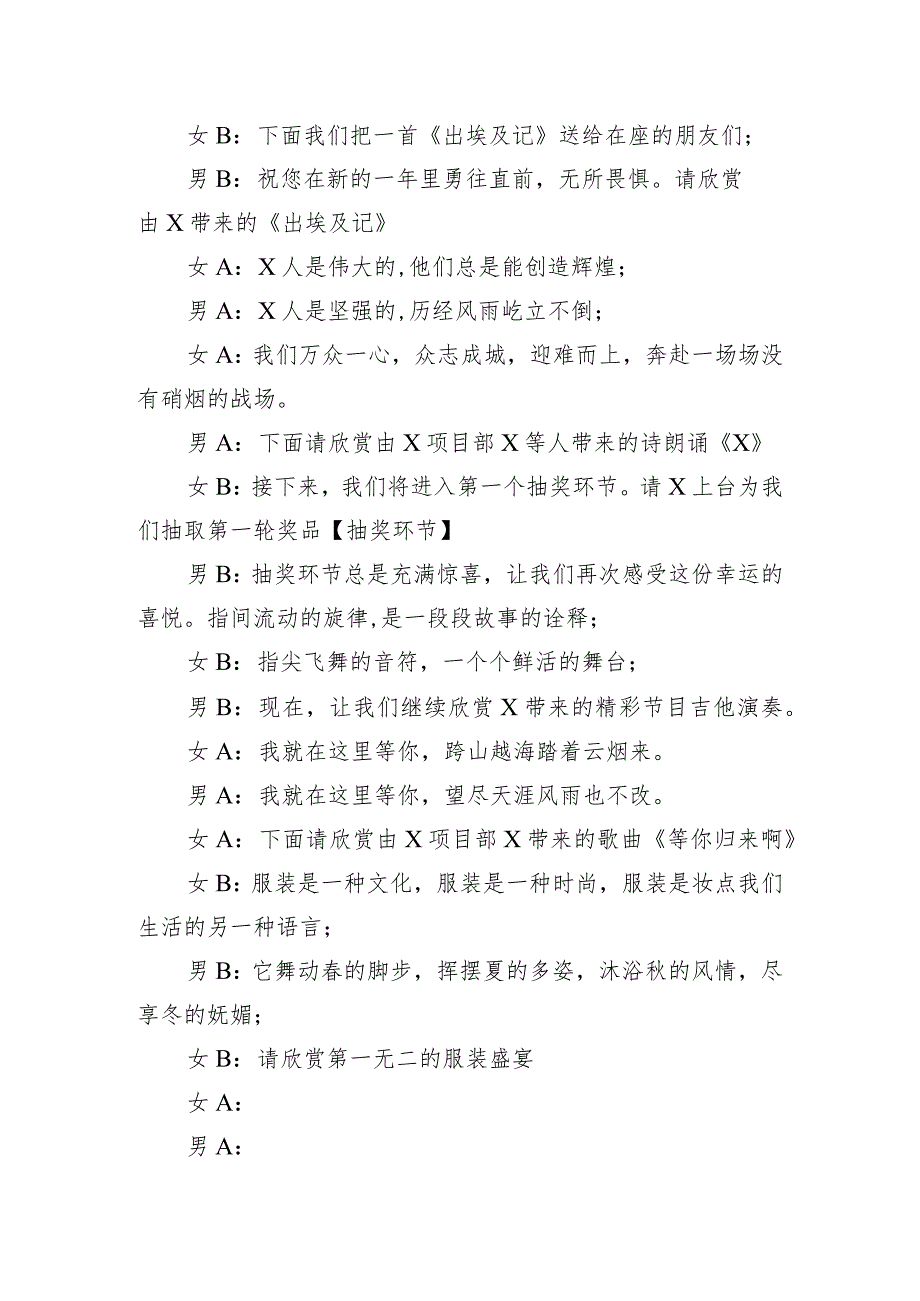 女 B：下面我们把一首《出埃及记》送给在座的朋友们；
男 B：祝您在新的一年里勇往直前，无所畏惧。请欣赏
由 X 带来的《出埃及记》
女 A：X 人是伟大的,他们总是能创造辉煌；
男 A：X 人是坚强的,历经风雨屹立不倒；
女 A：我们万众一心，众志成城，迎难而上，奔赴一场场没
有硝烟的战场。
男 A：下面请欣赏由 X 项目部 X 等人带来的诗朗诵《X》
女 B：接下来，我们将进入第一个抽奖环节。请 X 上台为我
们抽取第一轮奖品【抽奖环节】
男 B：抽奖环节总是充满惊喜，让我们再次感受这份幸运的
喜悦。指间流动的旋律,是一段段故事的诠释；
女 B：指尖飞舞的音符，一个个鲜活的舞台；
男 B：现在，让我们继续欣赏 X 带来的精彩节目吉他演奏。
女 A：我就在这里等你，跨山越海踏着云烟来。
男 A：我就在这里等你，望尽天涯风雨也不改。
女 A：下面请欣赏由 X 项目部 X 带来的歌曲《等你归来啊》
女 B：服装是一种文化，服装是一种时尚，服装是妆点我们
生活的另一种语言；
男 B：它舞动春的脚步，挥摆夏的多姿，沐浴秋的风情，尽
享冬的妩媚；
女 B：请欣赏第一无二的服装盛宴
女 A：
男 A：